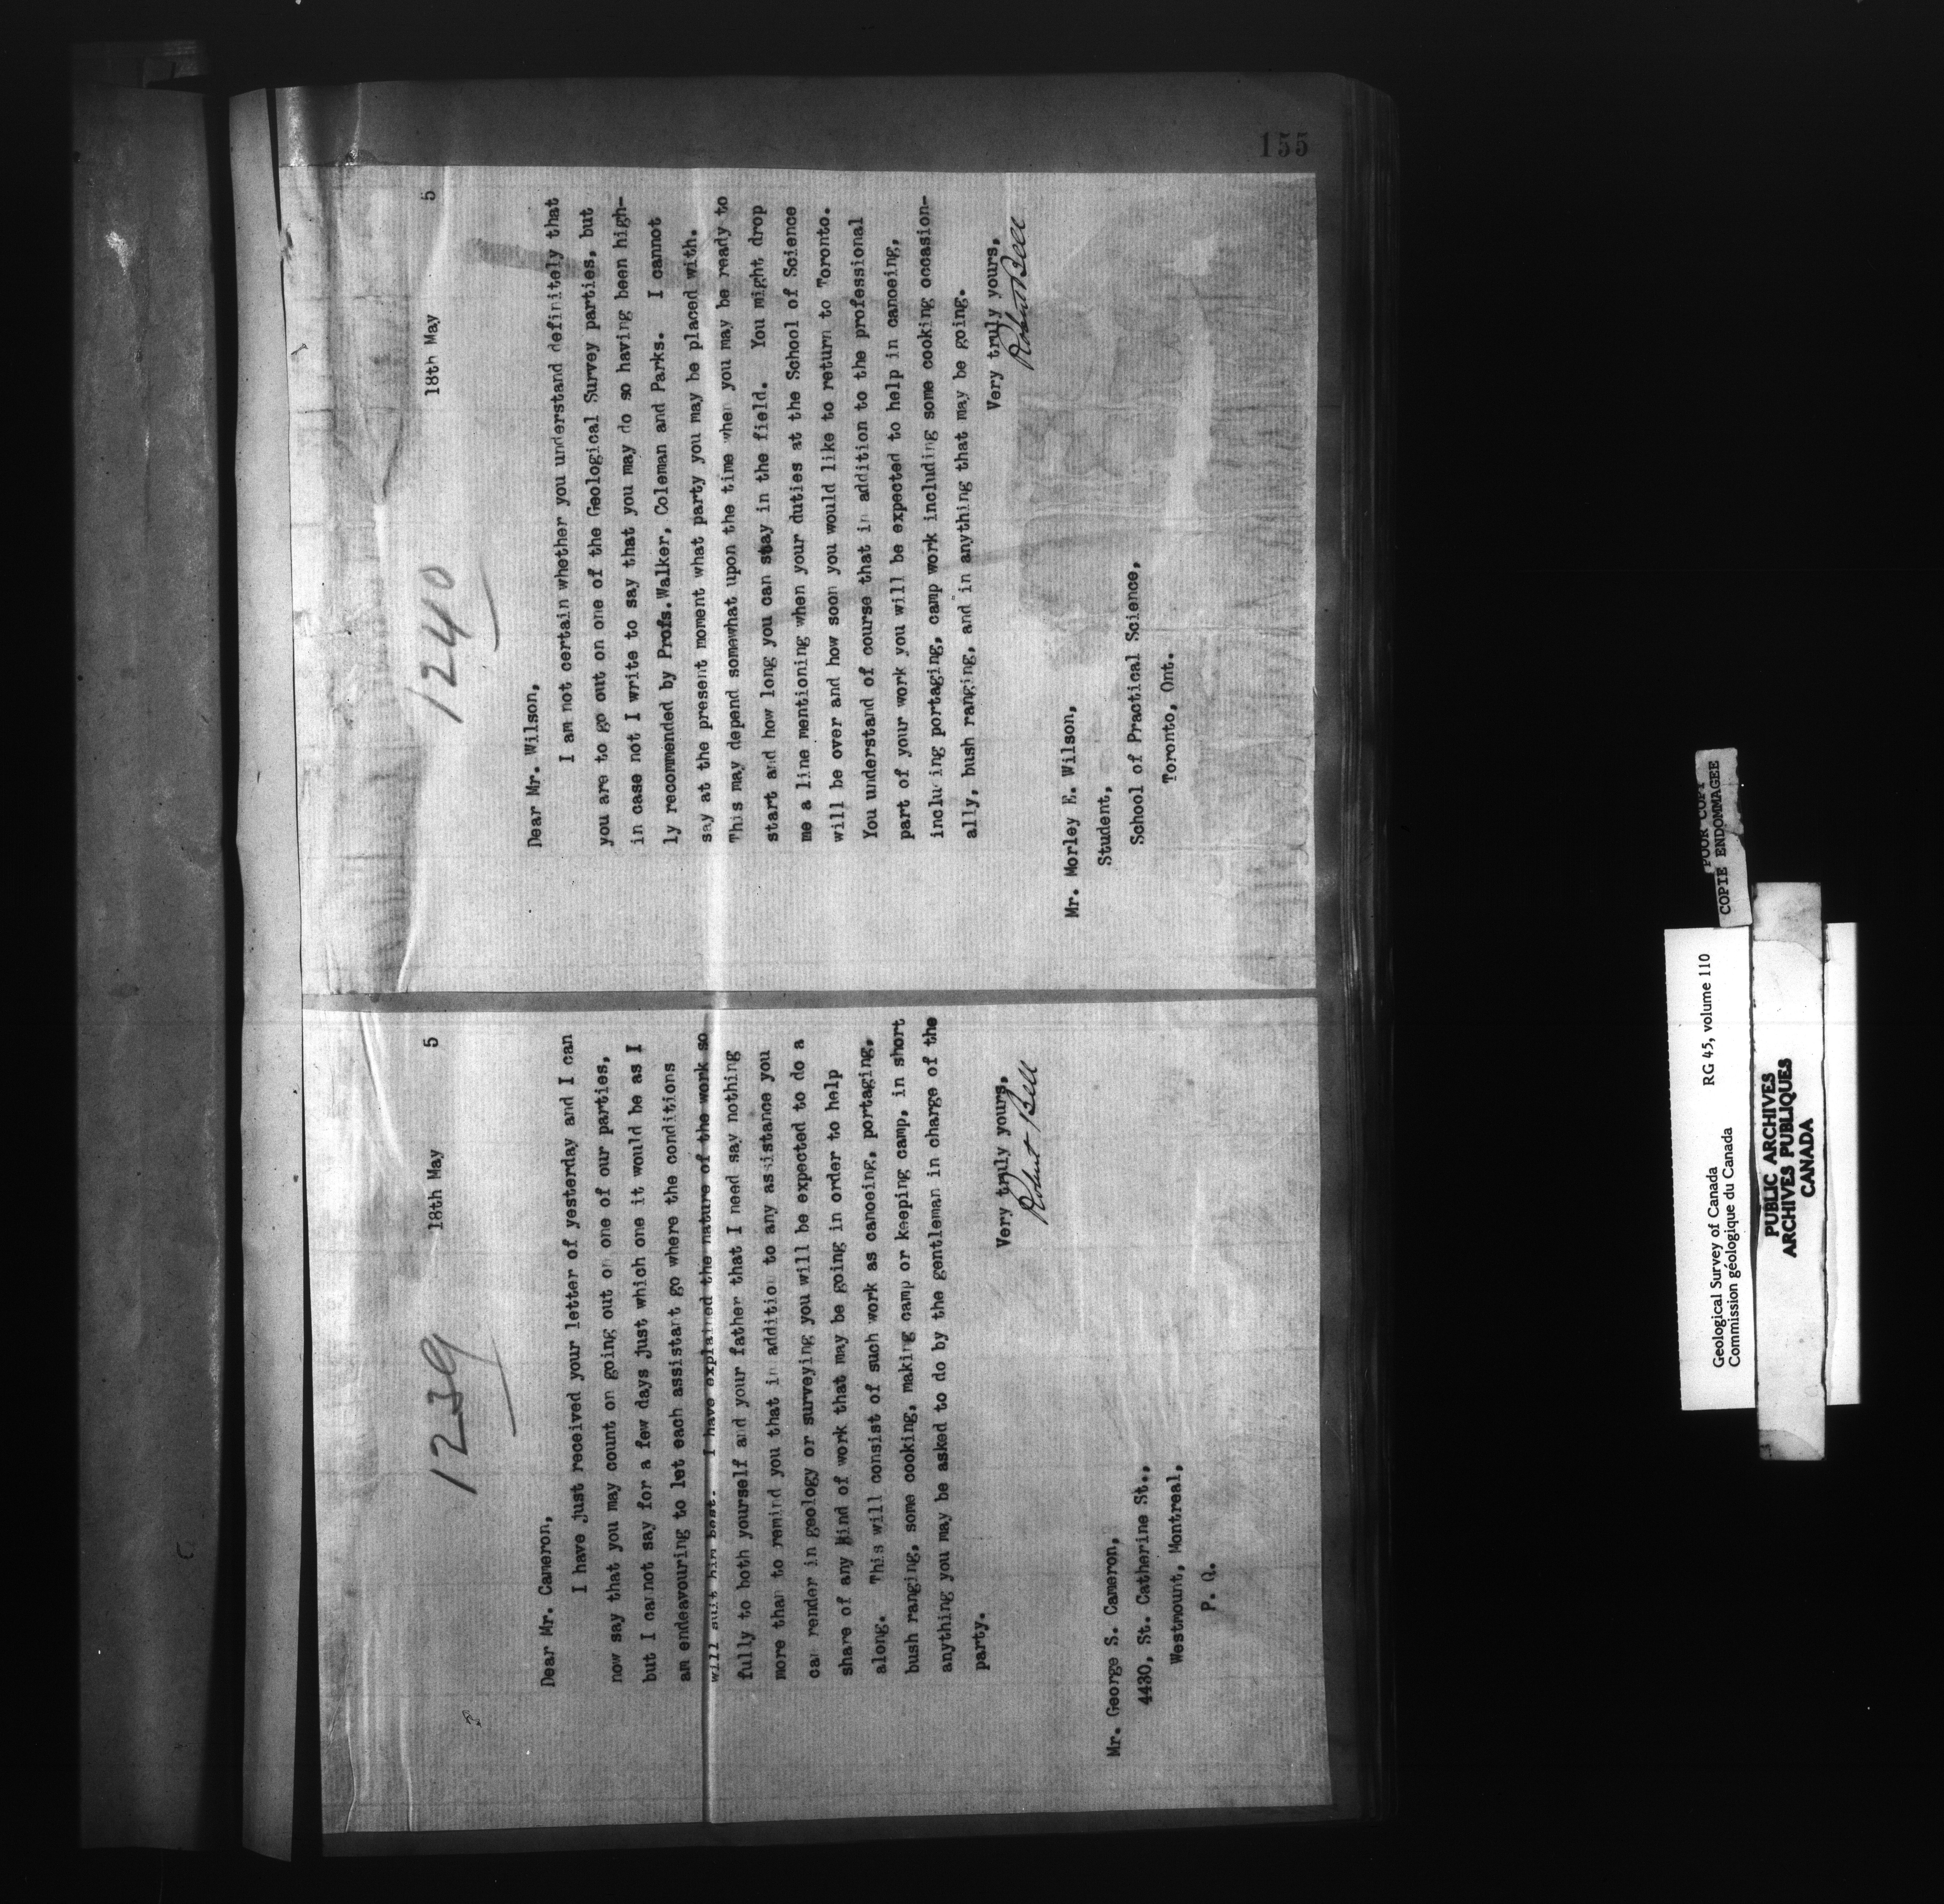 1239
18th May 5
Dear Mr. Cameron,
I have just received your letter of yesterday and I can
now say that you may count on going out on one of our parties,
but I cannot say for a few days just which one it would be as I
am endeavouring to let each assistant go where the conditions
will suit him best. I have explained the nature of the work so
fully to both yourself and your father that I need say nothing
more than to remind you that in addition to any assistance you
can render in geology or surveying you will be expected to do a
share of any kind of work that may be going in order to help
along. This will consist of such work as canoeing, portaging,
bush ranging, some cooking, making camp or keeping camp, in short
anything you may be asked to do by the gentleman in charge of the
party.
Very truly yours,
Robert Bell
Mr. George S. Cameron,
4430, St. Catherine St.,
Westmount, Montreal,
P. Q.
155
1240
18th May 5
Dear Mr. Wilson,
I am not certain whether you understand definitely that
you are to go out on one of the Geological Survey parties, but
in case not I write to say that you may do so having been high-
ly recommended by Profs.Walker, Coleman and Parks. I cannot
say at the present moment what party you may be placed with.
This may depend somewhat upon the time when you may be ready to
start and how long you can stay in the field. You might drop
me a line mentioning when your duties at the School of Science
will be over and how soon you would like to return to Toronto.
You understand of course that in addition to the professional
part of your work you will be expected to help in canoeing,
inclu ing portaging, camp work including some cooking occasion-
ally, bush ranging, and in anything that may be going.
Very truly yours,
Robert Bell
Mr. Morley E. Wilson,
Student,
School of Practical Science,
Toronto, Ont.
Geological Survey of Canada RG 45, volume 110
Commission géologique du Canada
POOR COPY
COPIE ENDOMMAGEE
PUBLIC ARCHIVES
ARCHIVES PUBLIQUES
CANADA